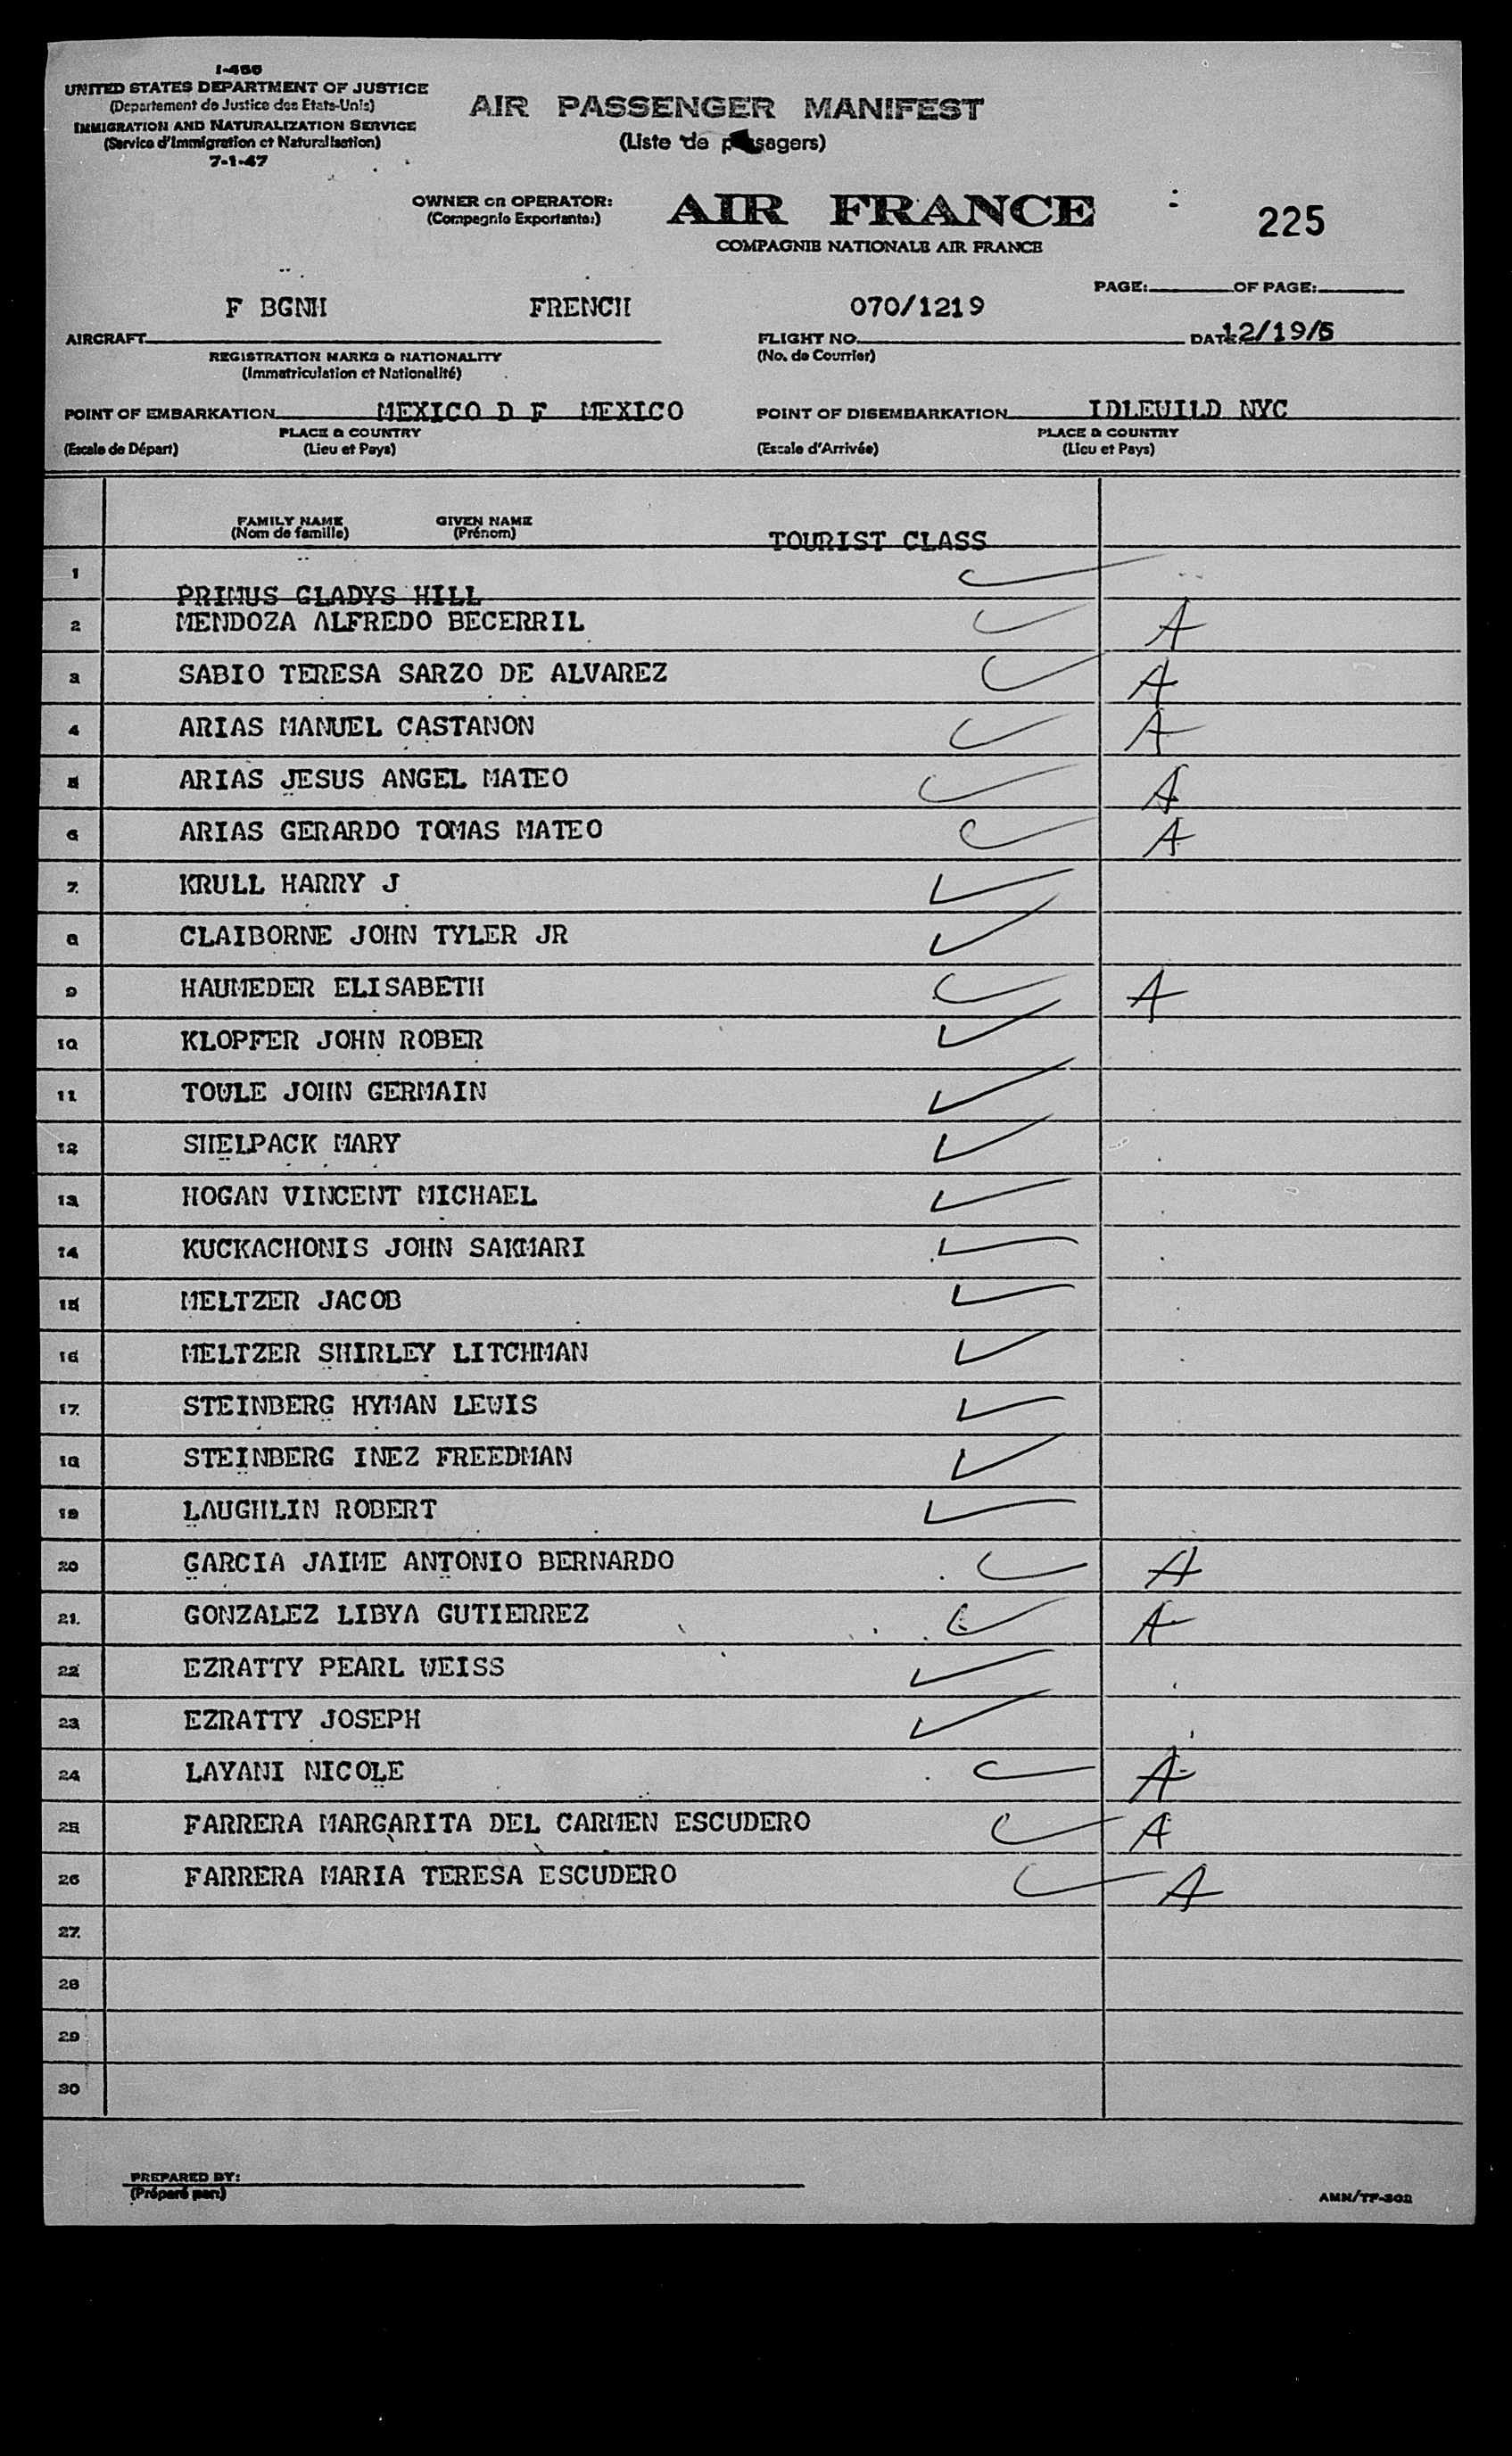 I-466
UNITED STATES DEPARTMENT OF JUSTICE
(Departement de Justice des Etats-Unis)
IMMIGRATION AND NATURALIZATION SERVICE
(Service d'Immigration et Naturalisation)
7-1-47
AIR PASSENGER MANIFEST
(Liste de passagers)
OWNER OR OPERATOR:
(Compagnie Exportante:)
AIR FRANCE
COMPAGNIE NATIONALE AIR FRANCE
225
PAGE: OF PAGE:
AIRCRAFT F BGNH FRENCH
REGISTRATION MARKS & NATIONALITY
(Immatriculation et Nationalité)
FLIGHT NO. 070/1219
(No. de Courrier)
DATE 12/19/5
POINT OF EMBARKATION MEXICO D F MEXICO
PLACE & COUNTRY
(Escale de Départ) (Lieu et Pays)
POINT OF DISEMBARKATION IDLEWILD NYC
PLACE & COUNTRY
(Escale d'Arrivée) (Lieu et Pays)
FAMILY NAME GIVEN NAME
(Nom de famille) (Prénom)
TOURIST CLASS
1 PRIMUS GLADYS HILL
2 MENDOZA ALFREDO BECERRIL A
3 SABIO TERESA SARZO DE ALVAREZ A
4 ARIAS MANUEL CASTANON A
5 ARIAS JESUS ANGEL MATEO A
6 ARIAS GERARDO TOMAS MATEO A
7. KRULL HARRY J
8 CLAIBORNE JOHN TYLER JR
9 HAUMEDER ELISABETH A
10 KLOPFER JOHN ROBER
11 TOWLE JOHN GERMAIN
12 SHELPACK MARY
13 HOGAN VINCENT MICHAEL
14 KUCKACHONIS JOHN SAKMARI
15 MELTZER JACOB
16 MELTZER SHIRLEY LITCHMAN
17. STEINBERG HYMAN LEWIS
18 STEINBERG INEZ FREEDMAN
19 LAUGHLIN ROBERT
20 GARCIA JAIME ANTONIO BERNARDO A
21. GONZALEZ LIBYA GUTIERREZ A
22 EZRATTY PEARL WEISS
23 EZRATTY JOSEPH
24 LAYANI NICOLE A
25 FARRERA MARGARITA DEL CARMEN ESCUDERO A
26 FARRERA MARIA TERESA ESCUDERO A
27.
28
29
30
PREPARED BY:
(Préparé par:)
AMN/TF-302